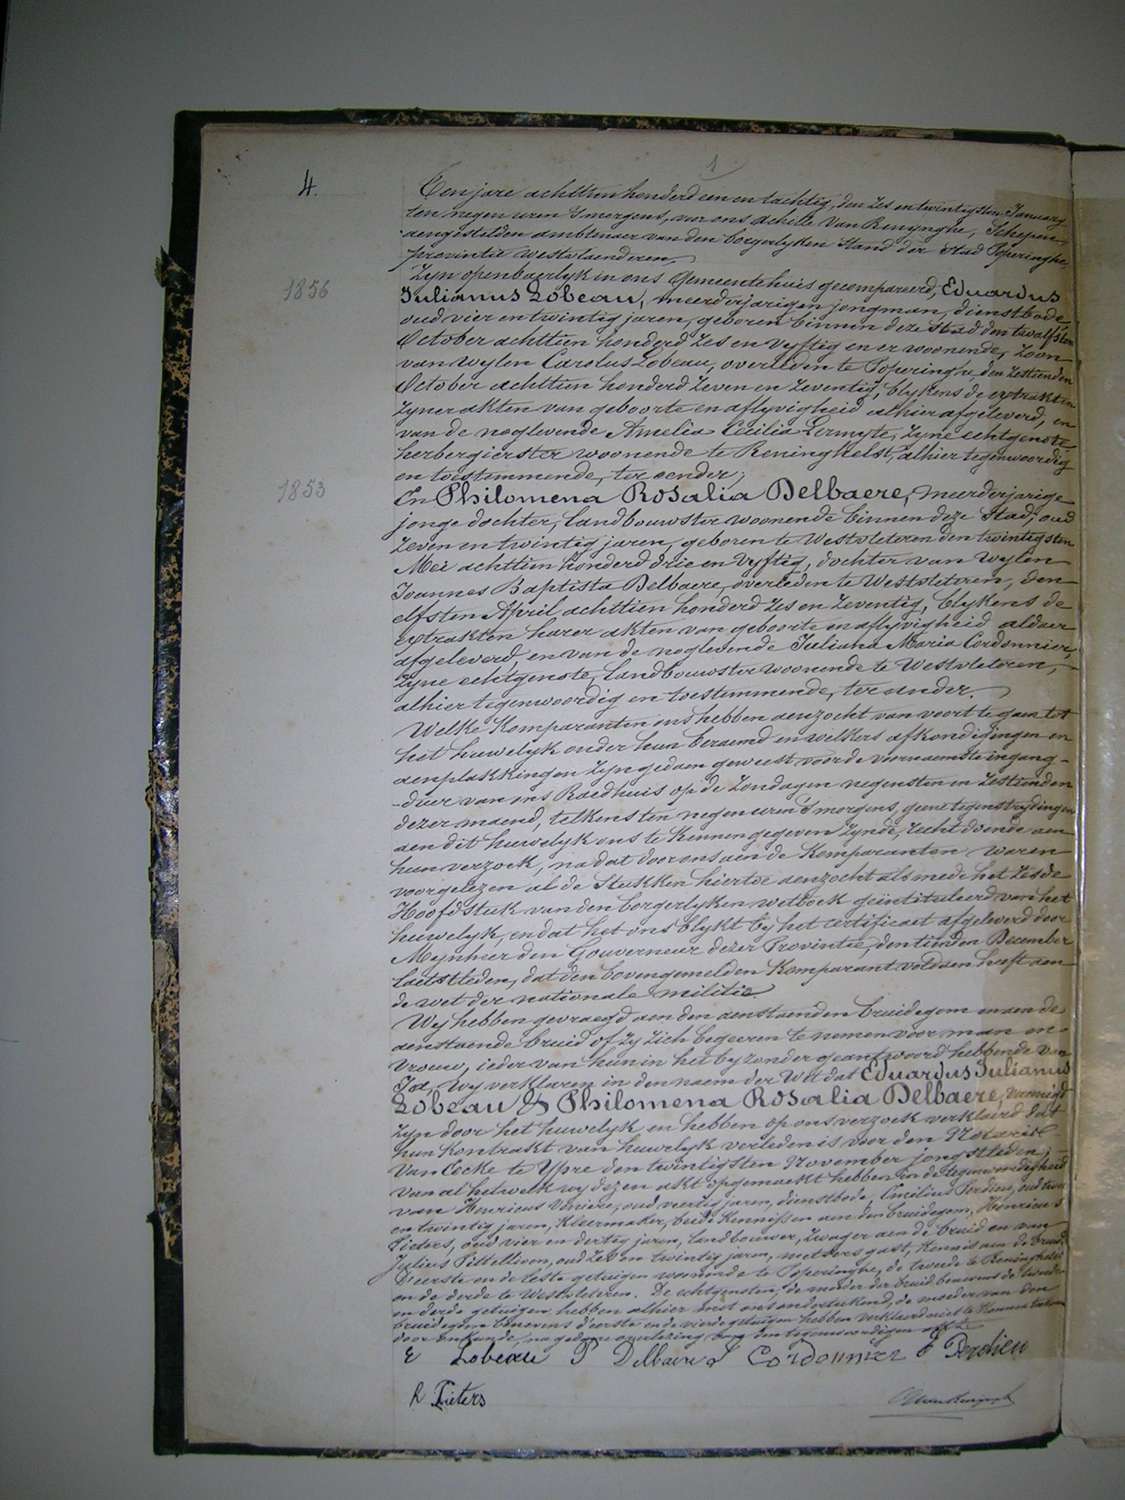 1
4.
Ten jare achttien honderd een en tachtig, den zes en twintigsten January
ten negen uren 's morgens, voor ons Achille Van Renynghe, Schepen,
aengestelden ambtenaer van den borgerlyken Stand der Stad Poperinghe,
provintie Westvlaenderen,
Zyn openbaerlyk in ons Gemeentehuis gecompareerd, Eduardus
1856
Julianus Lobeau, meerderjarigen jongman, dienstbode,
oud vier en twintig jaren, geboren binnen deze stad den twalfsten
October achttien honderd zes en vyftig en er woonende, zoon
van wylen Carolus Lobeau, overleden te Poperinghe, den zestienden
October achttien honderd zeven en zeventig, blykens de extrakten
zyner akten van geboorte en aflyvigheid alhier afgeleverd, en
van de noglevende Amelia Cecilia Lermyte, zyne echtgenote,
herbergierster woonende te Reninghelst, alhier tegenwoordig
en toestemmende, ter eender;
1853
En Philomena Rosalia Delbaere, meerderjarige
jonge dochter, landbouwster woonende binnen deze Stad, oud
zeven en twintig jaren, geboren te Westvleteren den twintigsten
Mei achttien honderd drie en vyftig, dochter van wylen
Joannes Baptista Delbaere, overleden te Westvleteren, den
elfsten April achttien honderd zes en zeventig, blykens de
extrakten harer akten van geboorte en aflyvigheid aldaer
afgeleverd, en van de noglevende Juliana Maria Cordonnier,
zyne echtgenote, landbouwster woonende te Westvleteren,
alhier tegenwoordig en toestemmende, ter ander.
Welke Komparanten ons hebben aenzocht van voort te gaen tot
het huwelyk onder hun beraemd en welkers afkondigingen en
aenplakkingen zyn gedaen geweest voor de voornaemste ingang-
-duer van ons Raedhuis op de zondagen negensten en zestienden
dezer maend, telkens ten negen uren 's morgens, geene tegenstrydingen
aen dit huwelyk ons te kennen gegeven zynde, recht doende aen
hun verzoek, na dat door ons aen de Komparanten waren
voorgelezen al de Stukken hiertoe aenzocht als mede het zesde
Hoofdstuk van den borgerlyken wetboek geintituleerd van het
huwelyk, en dat het ons blykt by het certificaet afgeleverd door
Mynheer den Gouverneur dezer Provintie, den tienden December
laetstleden, dat den bovengemelden Komparant voldaen heeft aen
de wet der nationale militie.
Wy hebben gevraegd aen den aenstaenden bruidegom en aen de
aenstaende bruid of zy zich begeeren te nemen voor man en
vrouw, ieder van hun in het byzonder geantwoord hebbende van
Ja, wy verklaren in den naem der Wet dat Eduardus Julianus
Lobeau & Philomena Rosalia Delbaere, vereenigd
zyn door het huwelyk en hebben op ons verzoek verklaerd dat
hun kontrakt van huwelyk verleden is voor den Notaris
Van Eecke te Ypre den twintigsten November jongstleden;
van al hetwelk wy dezen akt opgemaekt hebben in de tegenwoordigheid
van Henricus oud veertig jaren, dienstbode, Emilius Perdieu, oud
en twintig jaren, Kleermaker, beide Kennissen aen den bruidegom, Henricus
Pieters, oud vier en dertig jaren, landbouwer, zwager aen de bruid en van
Julius Pittellioen, oud zes en twintig jaren, metsers gast, Kennis aen de bruid,
D'eerste en de leste getuigen woonende te Poperinghe, de tweede te Reninghelst
en de derde te Westvleteren. De echtgenoten, de moeder der bruid benevens de tweeden
en derde getuigen hebben alhier met ons onderteekend, de moeder van den
bruidegom benevens d'eerste en de vierde getuigen hebben verklaerd niet te Konnen teekenen
door onkunde, na gedane voorlezing van den tegenwoordigen akte
E Lobeau P Delbaere J Cordonnier E Perdieu
h Pieters